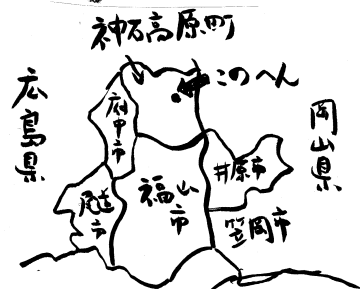 神石高原町
このへん
広島県
岡山県
府中市
井原市
尾道市
福山市
笠岡市